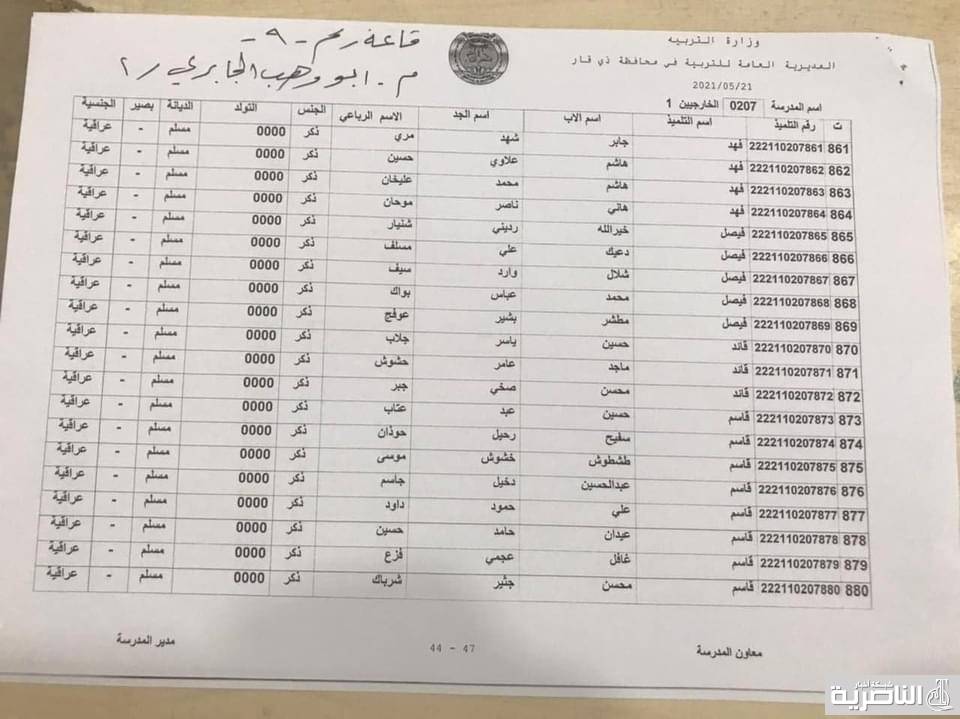 وزارة التربيه
المديرية العامة للتربية في محافظة ذي قار
2021/05/21
قاعة رقم - ٩ -
م. ابو وهب الجابري / ٢
اسم المدرسة 0207 الخارجيين 1
ت رقم التلميذ اسم التلميذ اسم الاب اسم الجد الاسم الرباعي الجنس التولد الديانة بصير الجنسية
861 222110207861 فهد جابر شهد مري ذكر 0000 مسلم - عراقية
862 222110207862 فهد هاشم علاوي حسين ذكر 0000 مسلم - عراقية
863 222110207863 فهد هاشم محمد عليخان ذكر 0000 مسلم - عراقية
864 222110207864 فهد هاني ناصر موحان ذكر 0000 مسلم - عراقية
865 222110207865 فيصل خيرالله رديني شنيار ذكر 0000 مسلم - عراقية
866 222110207866 فيصل دعيك علي مسلف ذكر 0000 مسلم - عراقية
867 222110207867 فيصل شلال وارد سيف ذكر 0000 مسلم - عراقية
868 222110207868 فيصل محمد عباس بواك ذكر 0000 مسلم - عراقية
869 222110207869 فيصل مطشر بشير عوفج ذكر 0000 مسلم - عراقية
870 222110207870 قائد حسين ياسر جلاب ذكر 0000 مسلم - عراقية
871 222110207871 قائد ماجد عامر حشوش ذكر 0000 مسلم - عراقية
872 222110207872 قائد محسن صخي جبر ذكر 0000 مسلم - عراقية
873 222110207873 قاسم حسين عبد عتاب ذكر 0000 مسلم - عراقية
874 222110207874 قاسم سفيح رحيل حوذان ذكر 0000 مسلم - عراقية
875 222110207875 قاسم طشطوش خشوش موسى ذكر 0000 مسلم - عراقية
876 222110207876 قاسم عبدالحسين دخيل جاسم ذكر 0000 مسلم - عراقية
877 222110207877 قاسم علي حمود داود ذكر 0000 مسلم - عراقية
878 222110207878 قاسم عيدان حامد حسين ذكر 0000 مسلم - عراقية
879 222110207879 قاسم غافل عجمي فزع ذكر 0000 مسلم - عراقية
880 222110207880 قاسم محسن جثير شرباك ذكر 0000 مسلم - عراقية
معاون المدرسة 44 - 47 مدير المدرسة
شبكة أخبار
الناصرية